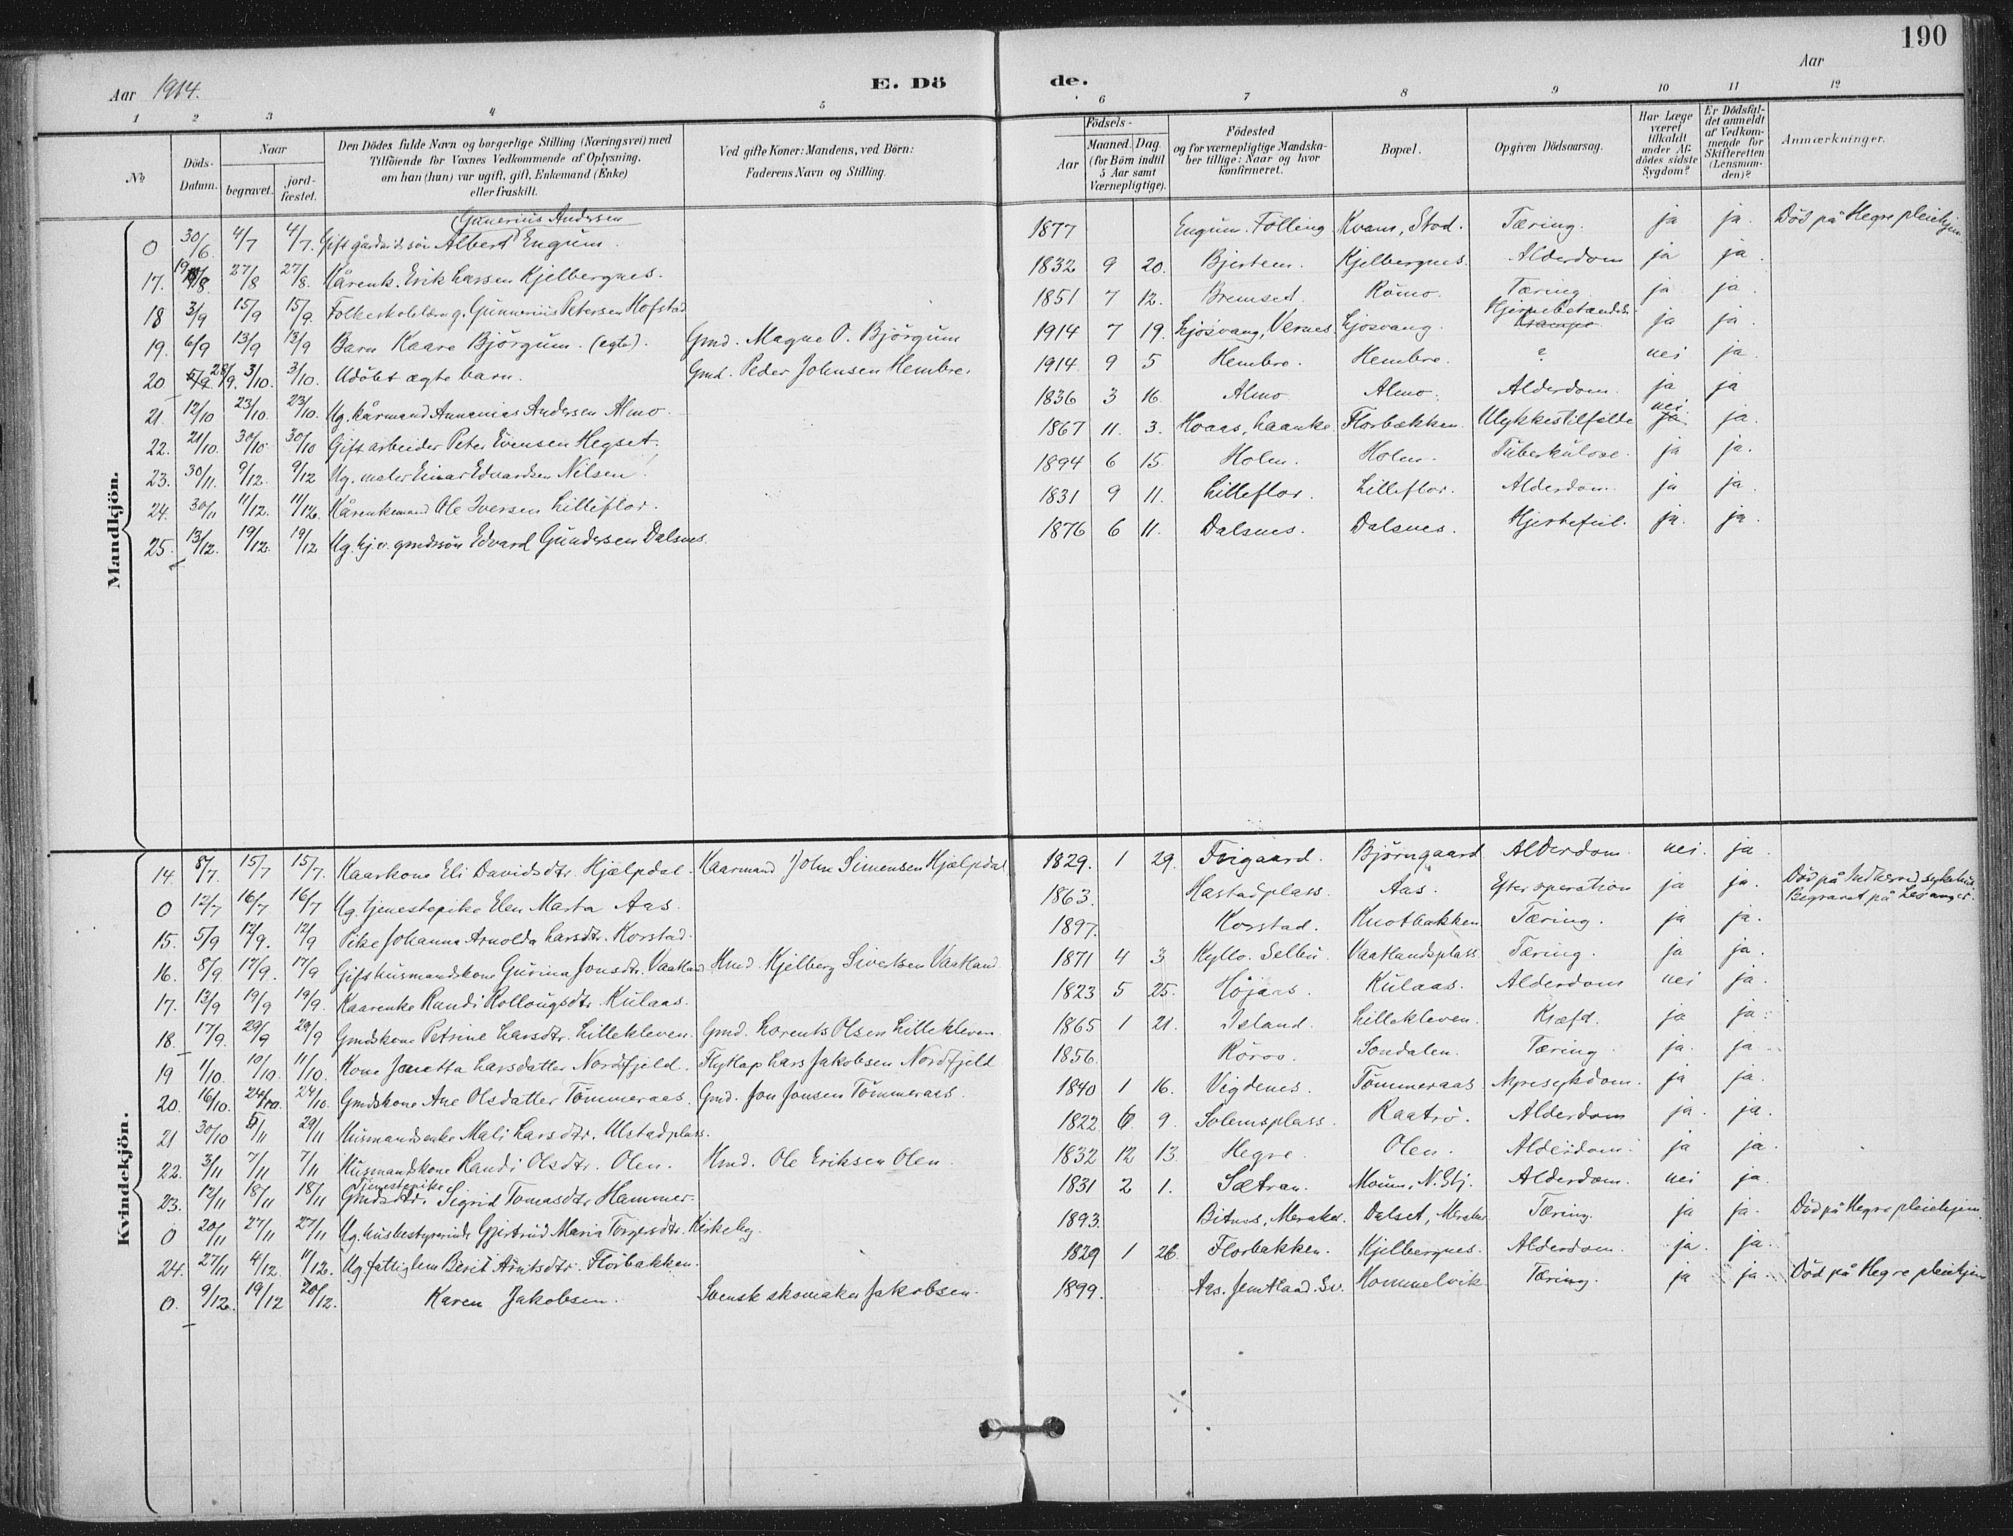 190
Aar 1914.
E. Döde.
Aar
1 2 3 4 5 6 7 8 9 10 11 12
No
Döds-Datum.
Naar begravet. jordfæstet.
Den Dödes fulde Navn og borgerlige Stilling (Næringsvei) med Tilföiende for Voxnes Vedkommende af Oplysning, om han (hun) var ugift, gift, Enkemand (Enke) eller fraskilt.
Ved gifte Koner: Mandens, ved Börn: Faderens Navn og Stilling.
Födsels- Aar Maaned. Dag. (for Börn indtil 5 Aar samt Værnepligtige).
Födested og for værnepligtige Mandskaber tillige: Naar og hvor konfirmeret.
Bopæl.
Opgiven Dödsaarsag.
Har Læge været tilkaldt under Afdödes sidste Sygdom?
Er Dödsfaldet anmeldt af Vedkommende for Skifteretten (Lensmanden)?
Anmærkninger.
Mandkjön.
Gunerius Andersen
0 30/6 4/7 4/7 Gift gårdeiersön Albert Engum. 1877 Engum. Fölling Kvam, Stod. Tæring. ja ja. Död på Hegre pleiehjem
17. 19/8. 27/8 27/8. Kårenk. Erik Larsen Kjelbergnes. 1832 9 20. Bjertem. Kjelbergnes. Alderdom ja ja.
18 3/9 15/9 15/9. Folkeskolelærer g. Gunnerius Petersen Hofstad 1851 7 12. Bremset. Römo. Tæring ja ja.
19. 6/9 13/9 13/9 Barn Kaare Björgum. (egte). Gmd. Magne O. Björgum 1914 7 19. Ljosvang, Vernes Ljosvang. Hjernebetændelse Krampe ja ja.
20 5/9 28/9. 3/10. 3/10. Udöbt ægte barn. Gmd. Peder Johnsen Hembre. 1914. 9 5 Hembre. Hembre. ? nei ja.
21 12/10 23/10. 23/10. Ug. kårmand Annanias Andersen Almo. 1836 3 16. Almo Almo. Alderdom. ja ja
22. 21/10. 30/10 30/10 Gift arbeider Peter Evensen Hegset. 1867 11. 3. Hoaas, Laanke Florbakken. Ulykkestilfælde nei. ja ja.
23. 30/11. 9/12. 9/12 Ug. maler Einar Edvardsen Nilsen 1894 6 15. Holen. Holen. Tuberkulose. ja ja.
24. 30/11 11/12. 11/12. Kårenkemand Ole Iversen Lilleflor. 1831 9 11. Lilleflor. Lilleflor. Alderdom. ja ja.
25. 13/12. 19/12. 19/12 Ug. hj.v. gmdssön Edvard Gundersen Dalsnes. 1876 6 11. Dalsnes. Dalsnes. Hjertefeil. ja. ja.
Kvindekjön.
14. 8/7. 15/7 15/7. Kaarkone Eli Davidsdtr. Hjælpdal. Kaarmand John Simensen Hjælpdal 1829. 1 29. Trigaard. Björngaard Alderdom. nei. ja.
0 12/7 16/7 16/7 Ug. tjenestepike Elen Marta Aas. 1863. Hastadplass. Aas. Efter operation ja ja. Död på Indherred sykehus Begravet på Levanger.
15. 5/9 12/9. 12/9 Pike Johanna Arnolda Larsdtr. Korstad. 1897. Korstad. Knotbakken Tæring. ja ja.
16. 8/9 17/9. 17/9 Gift husmandskone Gurina Jonsdtr. Vaatland Hmd Kjelberg Sivertsen Vaatland 1871 4 3 Kyllo. Selbu Vaatlandsplass Tæring. ja ja.
17. 13/9 19/9 19/9. Kaarenke Randi Rollougsdtr. Kulaas. 1823 5 25. Höjaas. Kulaas. Alderdom nei ja.
18. 17/9. 29/9 29/9 Gmdskone Petrine Larsdtr. Lillekleven. Gmd. Lorents Olsen Lillekleven 1865 1 21. Island. Lillekleven. Kræft. ja ja.
19 1/10. 10/10. 11/10. Kone Jenetta Larsdatter Nordfjeld. Flytlap Lars Jakobsen Nordfjeld 1856. Röros. Sondalen. Tæring. ja. ja
20. 16/10. 24/10. 24/10. Gmdskone Ane Olsdatter Tömmeraas. Gmd. Jon Jonsen Tömmeraas. 1840 1 16. Vigdenes. Tömmeraas Nyresykdom. ja ja.
21 30/10 5/11 29/11 Husmandsenke Mali Larsdtr. Ulstadplass. 1822 6 9. Solemsplass. Raatrö. Alderdom ja. ja.
22. 3/11 7/11 7/11 Husmandskone Randi Olsdtr. Olen. Hmd. Ole Eriksen Olen. 1832 12 13. Hegre. Olen. Alderdom. ja ja.
Tjenestepike
23. 12/11 18/11 18/11 Gmdsdtr. Sigrid Tomasdtr. Hammer. 1831 2 1. Sætran. Moum, N. Stj. Alderdom. nei ja.
0 20/11 27/11 27/11 Ug. husbestyrerinde Gjertrud Maria Torgersdtr. Kirkeby. 1893. Bitnes, Meraker. Dalset, Meraker Tæring. ja ja. Död på Hegre pleiehjem.
24. 27/11 4/12. 11/12. Ug. fattiglem Berit Arntsdtr. Florbakken. 1829 1 26. Florbakken. Kjelbergnes. Alderdom. ja. ja.
0. 9/12. 19/12 20/12. Karen Jakobsen. Svensk skomaker Jakobsen. 1899. Aas. Jemtland. Sv. Hommelvik Tæring. ja ja. Död på Hegre pleiehjem